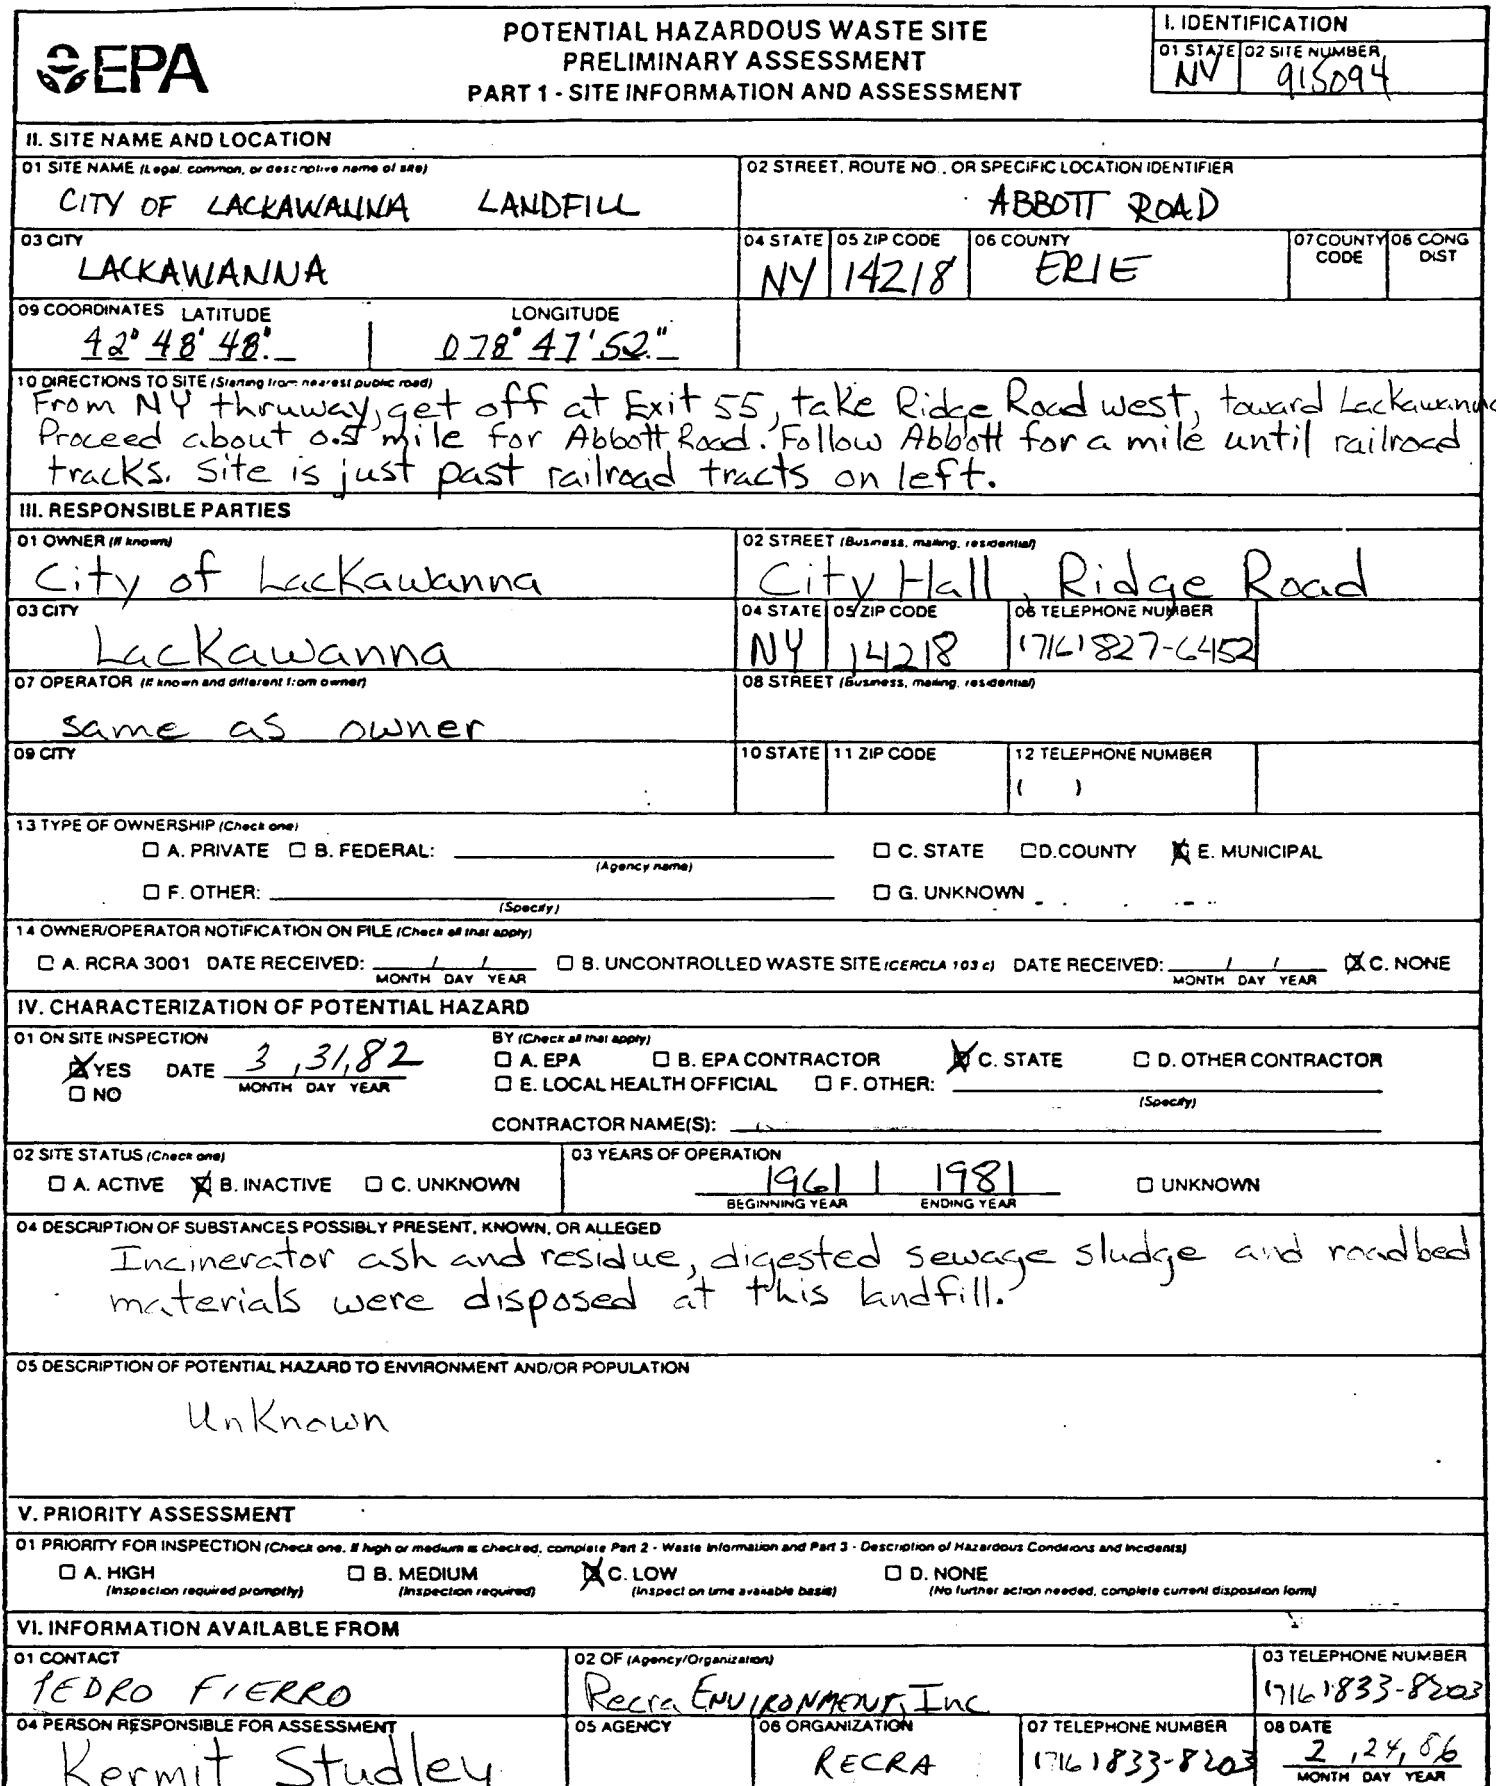 EPA
POTENTIAL HAZARDOUS WASTE SITE
PRELIMINARY ASSESSMENT
PART 1 - SITE INFORMATION AND ASSESSMENT
I. IDENTIFICATION
01 STATE 02 SITE NUMBER
NY 915094
II. SITE NAME AND LOCATION
01 SITE NAME (Legal, common, or descriptive name of site)
CITY OF LACKAWANNA LANDFILL
02 STREET, ROUTE NO., OR SPECIFIC LOCATION IDENTIFIER
ABBOTT ROAD
03 CITY
LACKAWANNA
04 STATE 05 ZIP CODE 06 COUNTY 07 COUNTY CODE 08 CONG DIST
NY 14218 ERIE
09 COORDINATES LATITUDE LONGITUDE
42° 48' 48" 078° 47' 52"
10 DIRECTIONS TO SITE (Starting from nearest public road)
From NY thruway, get off at Exit 55, take Ridge Road west, toward Lackawanna
Proceed about 0.5 mile for Abbott Road. Follow Abbott for a mile until railroad
tracks. Site is just past railroad tracts on left.
III. RESPONSIBLE PARTIES
01 OWNER (If known)
City of Lackawanna
02 STREET (Business, mailing, residential)
City Hall, Ridge Road
03 CITY
Lackawanna
04 STATE 05 ZIP CODE 06 TELEPHONE NUMBER
NY 14218 (716) 827-6452
07 OPERATOR (If known and different from owner)
same as owner
08 STREET (Business, mailing, residential)
09 CITY
10 STATE 11 ZIP CODE 12 TELEPHONE NUMBER
( )
13 TYPE OF OWNERSHIP (Check one)
☐ A. PRIVATE ☐ B. FEDERAL: (Agency name) ☐ C. STATE ☐ D. COUNTY ☒ E. MUNICIPAL
☐ F. OTHER: (Specify) ☐ G. UNKNOWN
14 OWNER/OPERATOR NOTIFICATION ON FILE (Check all that apply)
☐ A. RCRA 3001 DATE RECEIVED: / / ☐ B. UNCONTROLLED WASTE SITE (CERCLA 103 c) DATE RECEIVED: / / ☒ C. NONE
MONTH DAY YEAR MONTH DAY YEAR
IV. CHARACTERIZATION OF POTENTIAL HAZARD
01 ON SITE INSPECTION
☒ YES DATE 3, 31, 82
☐ NO MONTH DAY YEAR
BY (Check all that apply)
☐ A. EPA ☐ B. EPA CONTRACTOR ☒ C. STATE ☐ D. OTHER CONTRACTOR
☐ E. LOCAL HEALTH OFFICIAL ☐ F. OTHER:
(Specify)
CONTRACTOR NAME(S):
02 SITE STATUS (Check one)
☐ A. ACTIVE ☒ B. INACTIVE ☐ C. UNKNOWN
03 YEARS OF OPERATION
1961 | 1981 ☐ UNKNOWN
BEGINNING YEAR ENDING YEAR
04 DESCRIPTION OF SUBSTANCES POSSIBLY PRESENT, KNOWN, OR ALLEGED
Incinerator ash and residue, digested sewage sludge and roadbed
materials were disposed at this landfill.
05 DESCRIPTION OF POTENTIAL HAZARD TO ENVIRONMENT AND/OR POPULATION
Unknown
V. PRIORITY ASSESSMENT
01 PRIORITY FOR INSPECTION (Check one. If high or medium is checked, complete Part 2 - Waste Information and Part 3 - Description of Hazardous Conditions and Incidents)
☐ A. HIGH ☐ B. MEDIUM ☒ C. LOW ☐ D. NONE
(Inspection required promptly) (Inspection required) (Inspect on time available basis) (No further action needed, complete current disposition form)
VI. INFORMATION AVAILABLE FROM
01 CONTACT
PEDRO FIERRO
02 OF (Agency/Organization)
Recra ENVIRONMENT, Inc
03 TELEPHONE NUMBER
(716) 833-8203
04 PERSON RESPONSIBLE FOR ASSESSMENT
Kermit Studley
05 AGENCY
06 ORGANIZATION
RECRA
07 TELEPHONE NUMBER
(716) 833-8203
08 DATE
2, 24, 86
MONTH DAY YEAR